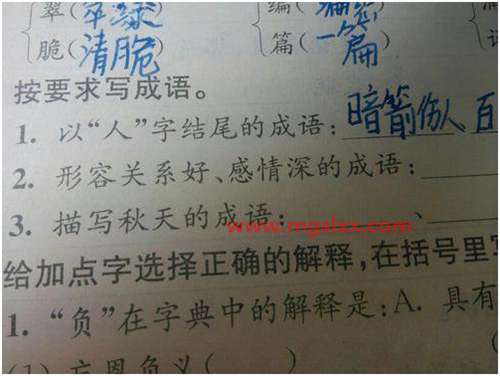 翠(翠绿) 编(
脆(清脆) 篇(一篇)
按要求写成语。
1. 以“人”字结尾的成语:暗箭伤人 百
2. 形容关系好、感情深的成语:
3. 描写秋天的成语: 、
www.mgslxx.com
给加点字选择正确的解释,在括号里写
1. “负”在字典中的解释是:A. 具有
(1) 忘恩负义( )